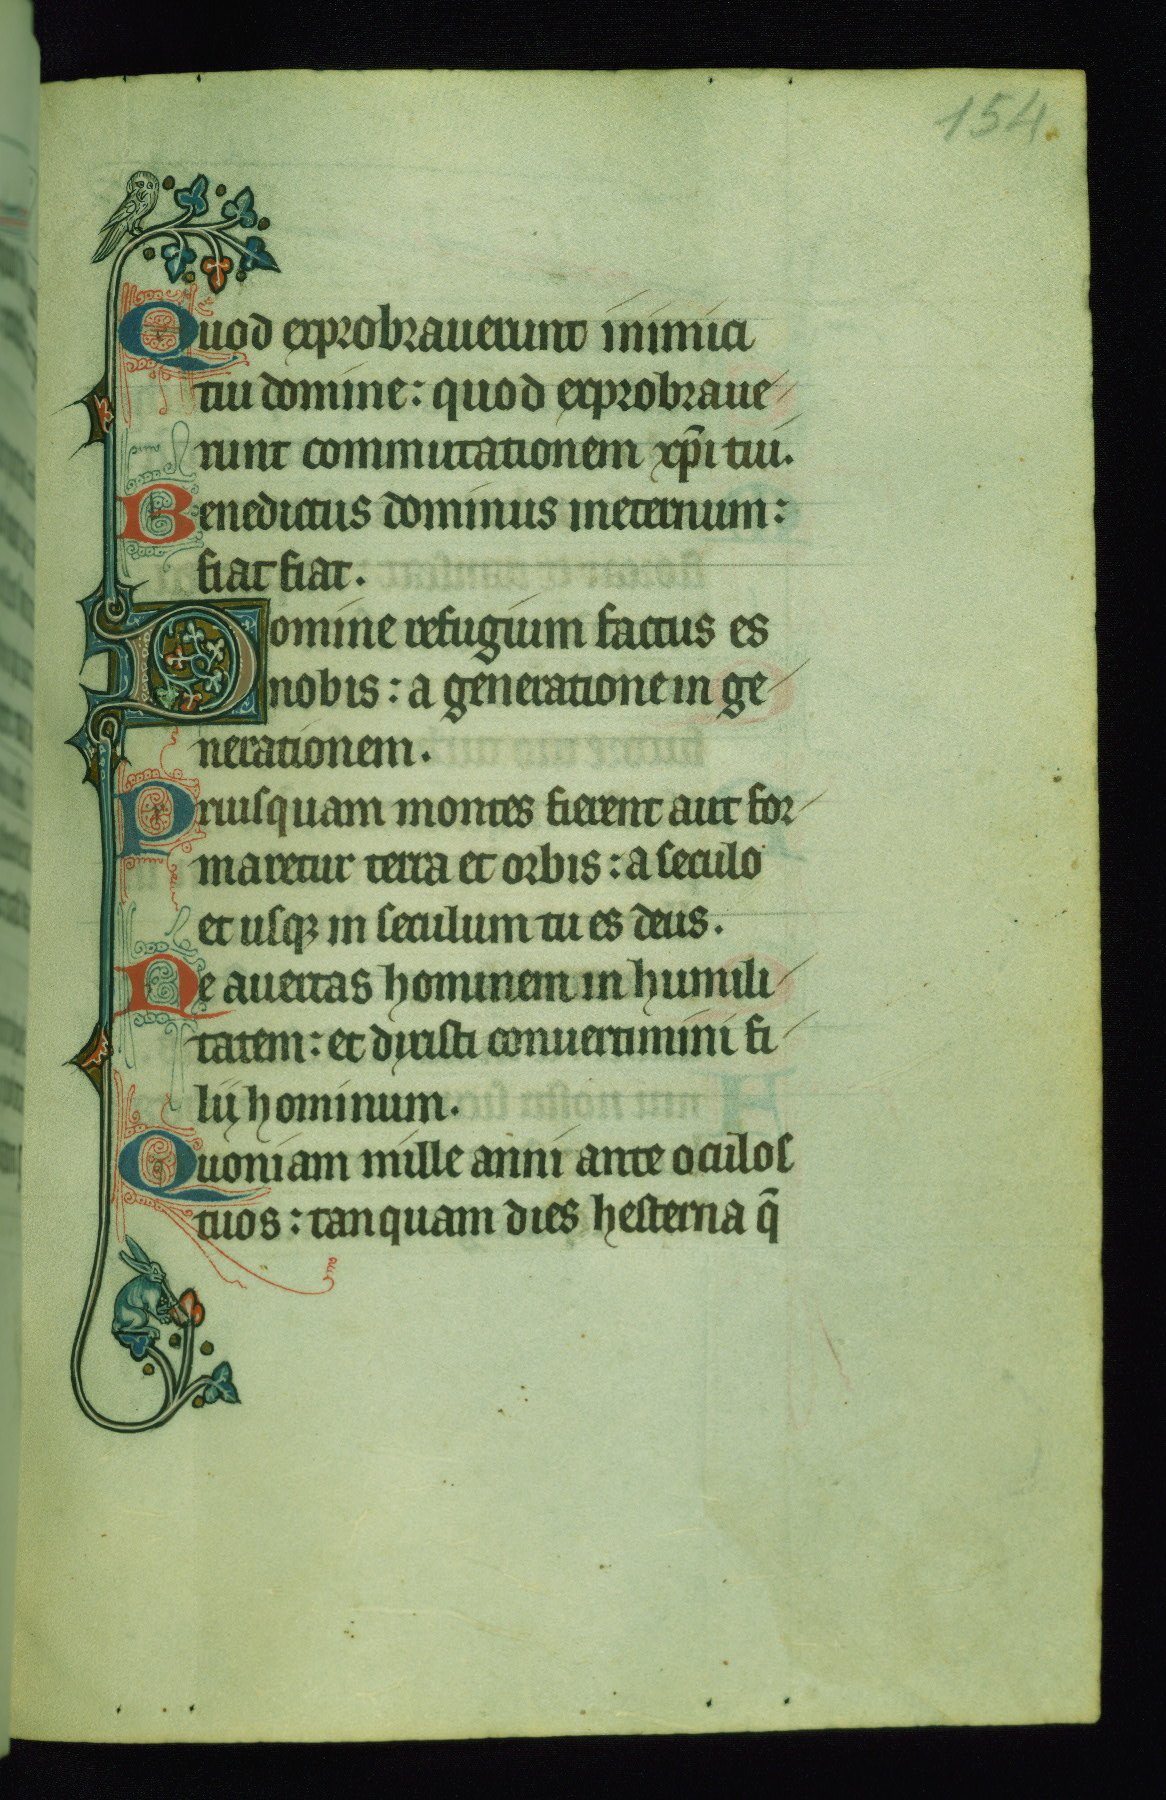 154.
Quod exprobrauerunt inimici
tui domine: quod exprobraue
runt commutationem xp̄i tui.
Benedictus dominus ineternum:
fiat fiat.
Domine refugium factus es
nobis: a generatione in ge
nerationem.
Priusquam montes fierent aut for
maretur terra et orbis: a seculo
et usqꝫ in seculum tu es deus.
Ne auertas hominem in humili
tatem: et dixisti conuertimini fi
lij hominum.
Quoniam mille anni ante oculos
tuos: tanquam dies hesterna q̄